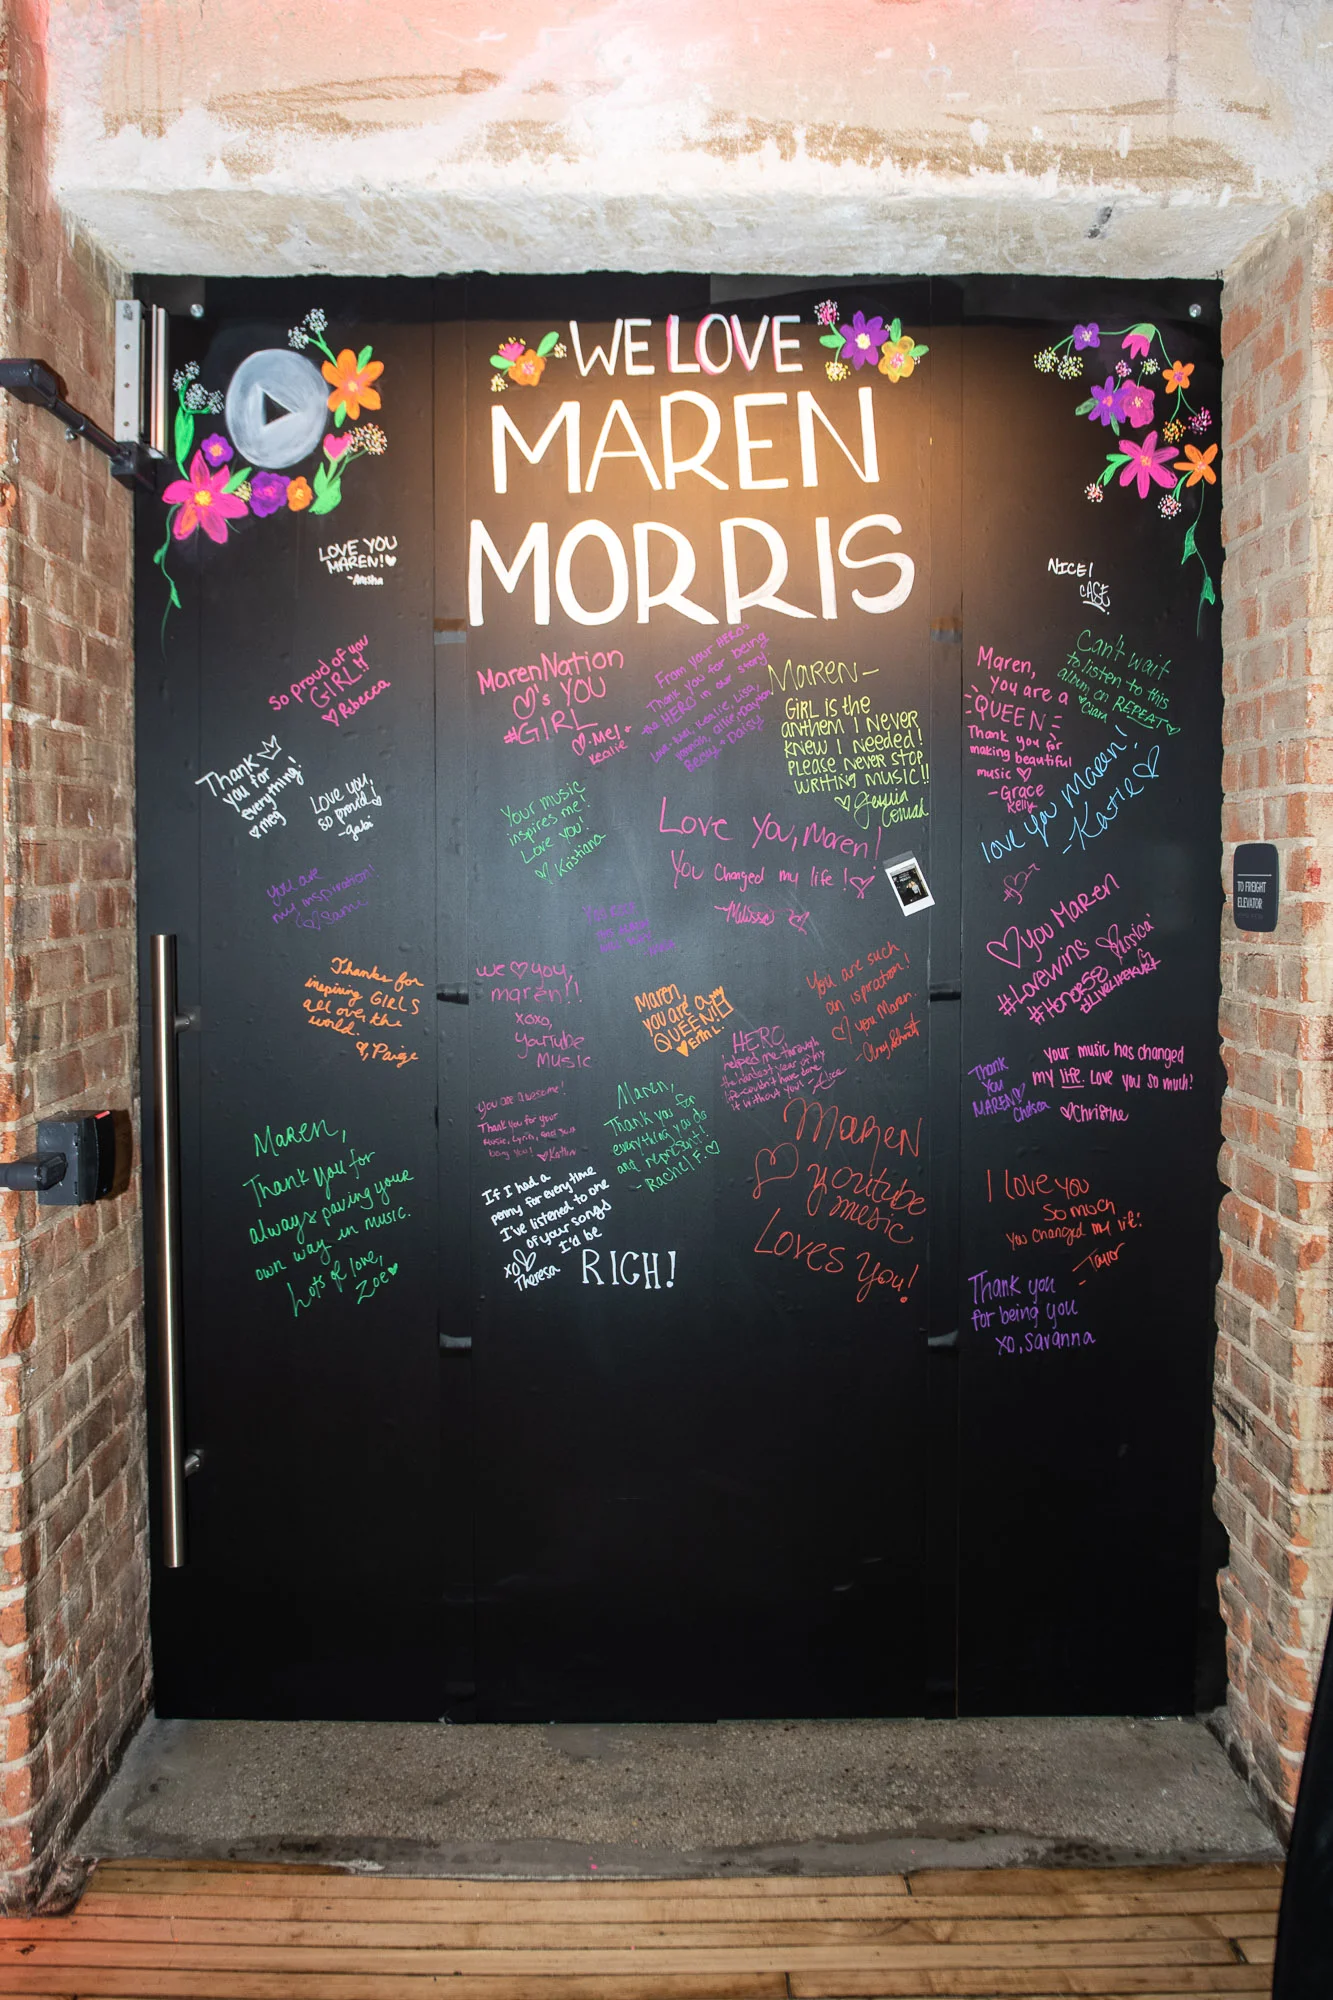 WE LOVE
MAREN
MORRIS
LOVE YOU
MAREN!
NICE!
CASE
SO PROUD OF YOU
GIRL!!
Rebecca
MarenNation
'S YOU
#GIRL
-Mel +
Kealie
From your HEROs
Thank you for being
the HERO in our story.
Becky + Daisy
MAREN-
GIRL is the
anthem I NEVER
KNEW I NEEDED!
PLEASE NEVER STOP
WRITING MUSIC!!
Maren,
you are a
QUEEN
Thank you for
making beautiful
music
-Grace
Kelly
Can't wait
to listen to this
album on REPEAT
Ciara
Thank
you for
everything!
meg
Love you,
so proud!
-gabi
Your music
inspires me!
Love you!
Kristiana
Love You, Maren!
You changed my life!
-Melissa
love you Maren!
-Katie
you are
my inspiration!
you Maren
#Lovewins
Jessica
Thanks for
inspiring GIRLS
all over the
world.
Paige
we you,
maren!!
xoxo,
YouTube
MUSIC
Maren,
you are a
QUEEN!
Erin L.
You are such
an ispration!
you Maren.
HERO
helped me through
the hardest year of my
it without you!
Thank
You
MAREN!
Chelsea
Your music has changed
my life. Love you so much!
Christine
You are awesome!
Thank you for your
music, lyrics, and just
being you!
Maren,
Thank you for
everything you do
and represent!
-Rachel F.
MAREN
youtube
music
Loves You!
Maren,
Thank you for
always paving your
own way in music.
Lots of love,
Zoe
If I had a
penny for everytime
I've listened to one
of your songs
I'd be
RICH!
XO
Theresa
I love you
so much
You changed my life!
-Taylor
Thank you
for being you
xo, savanna
TO FREIGHT
ELEVATOR